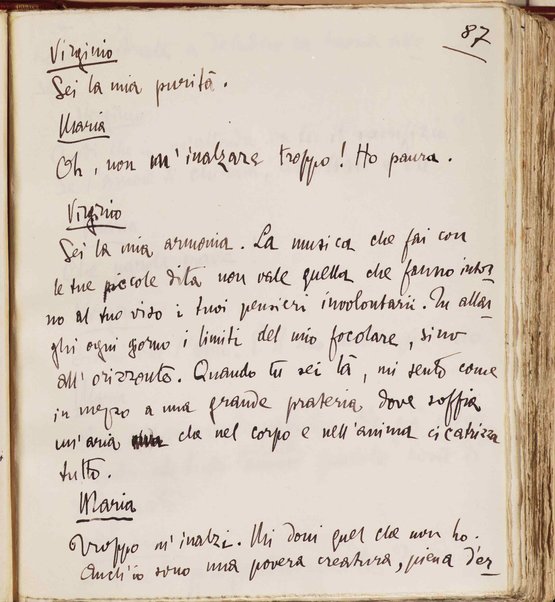 87
Virginio
Sei la mia purità.
Maria
Oh, non m'inalzare troppo! Ho paura.
Virginio
Sei la mia armonia. La musica che fai con
le tue piccole dita non vale quella che fanno intor-
no al tuo viso i tuoi pensieri involontarii. Tu allar-
ghi ogni giorno i limiti del mio focolare, sino
all'orizzonte. Quando tu sei là, mi sento come
in mezzo a una grande prateria dove soffia
un'aria che nel corpo e nell'anima cicatrizza
tutto.
Maria
Troppo m'inalzi. Mi doni quel che non ho.
Anch'io sono una povera creatura, piena d'er-